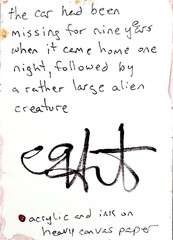 the car had been
missing for nine years
when it came home one
night, followed by
a rather large alien
creature
acrylic and ink on
heavy canvas paper